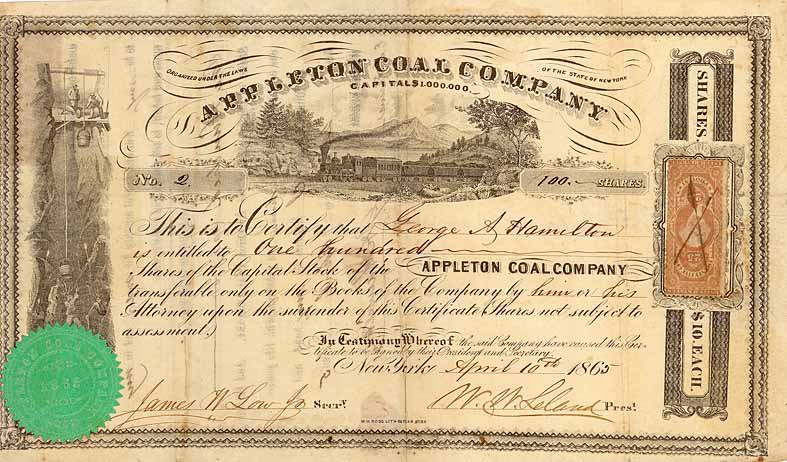 ORGANIZED UNDER THE LAWS
OF THE STATE OF NEW YORK
APPLETON COAL COMPANY
CAPITAL $1.000.000.
No. 2
100. SHARES.
This is to Certify that George A Hamilton
is entitled to One hundred
Shares of the Capital Stock of the APPLETON COAL COMPANY
transferable only on the Books of the Company by him or his
Attorney upon the surrender of this Certificate. Shares not subject to
assessment.
In Testimony Whereof the said Company have caused this Cer-
tificate to be signed by their President and Secretary.
New York April 10th 1865
James W Low Jr Secry.
W. W. Leland Prest.
SHARES
$10. EACH.
COAL COMP
1865